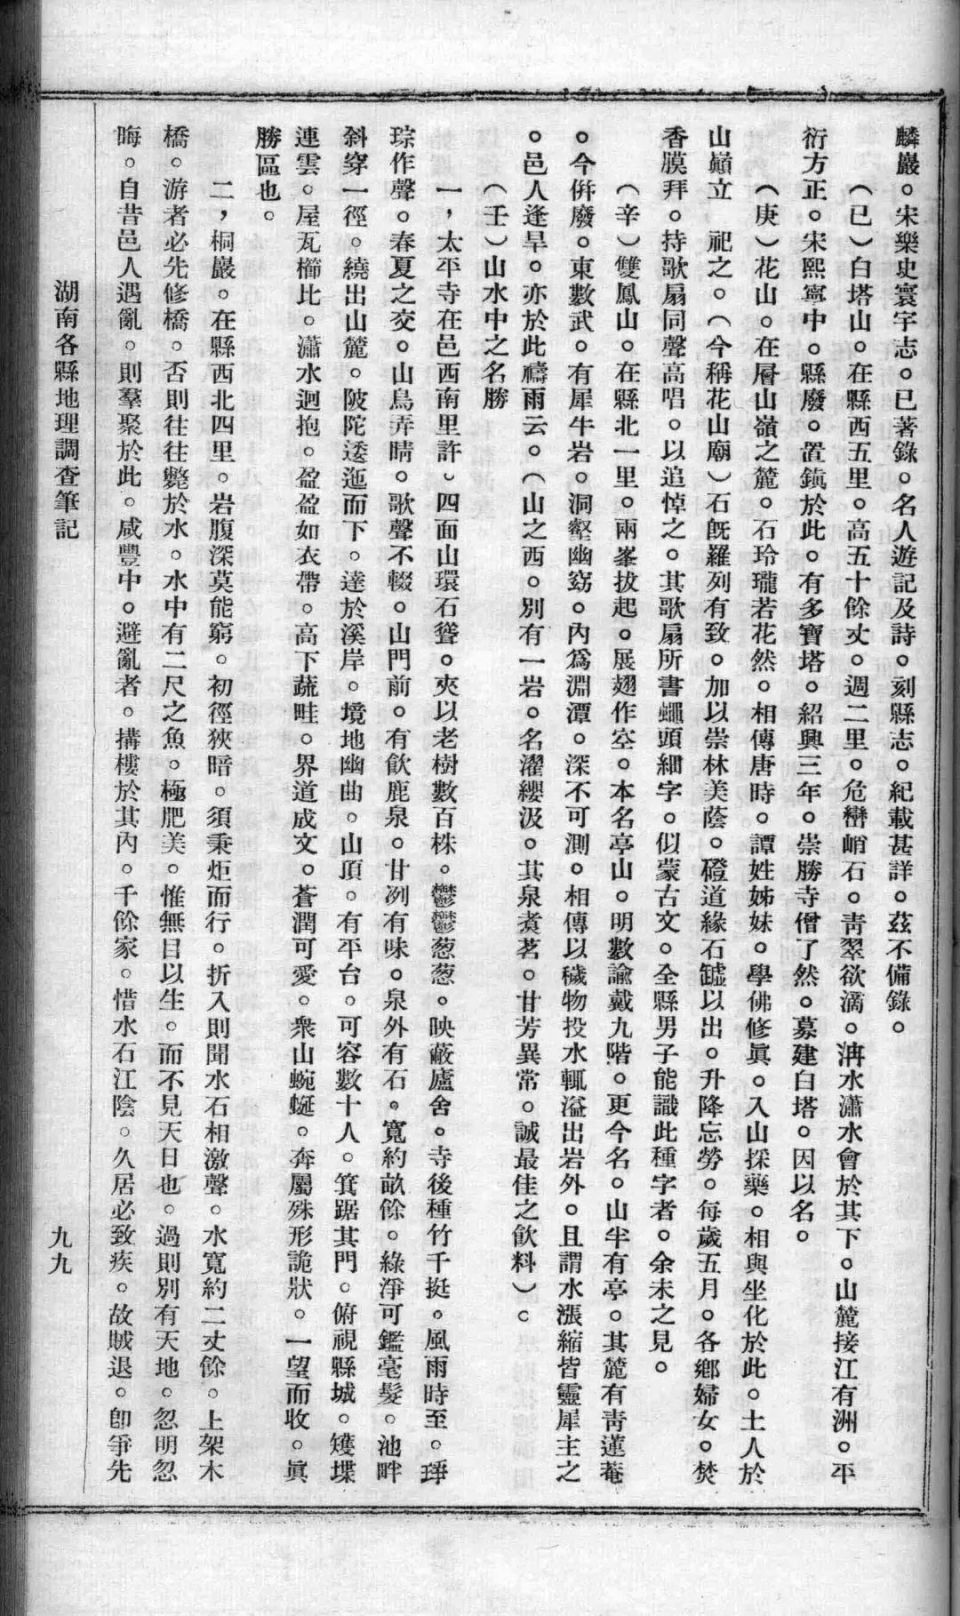 麟巖。宋樂史寰宇志。已著錄。名人遊記及詩。刻縣志。紀載甚詳。茲不備錄。
（已）白塔山。在縣西五里。高五十餘丈。週二里。危巒峭石。靑翠欲滴。溿水瀟水會於其下。山麓接江有洲。平
衍方正。宋熙寧中。縣廢。置鎭於此。有多寶塔。紹興三年。崇勝寺僧了然。募建白塔。因以名。
（庚）花山。在層山嶺之麓。石玲瓏若花然。相傳唐時。譚姓姊妹。學佛修眞。入山採藥。相與坐化於此。土人於
山巓立　祀之。（今稱花山廟）石旣羅列有致。加以崇林美蔭。磴道緣石罅以出。升降忘勞。每歲五月。各鄕婦女。焚
香膜拜。持歌扇同聲高唱。以追悼之。其歌扇所書蠅頭細字。似蒙古文。全縣男子能識此種字者。余未之見。
（辛）雙鳳山。在縣北一里。兩峯拔起。展翅作空。本名亭山。明數諭戴九階。更今名。山半有亭。其麓有靑蓮菴
。今併廢。東數武。有犀牛岩。洞壑幽窈。內爲淵潭。深不可測。相傳以穢物投水輒溢出岩外。且謂水漲縮皆靈犀主之
。邑人逢旱。亦於此禱雨云。（山之西。別有一岩。名濯纓汲。其泉煑茗。甘芳異常。誠最佳之飮料）。
（壬）山水中之名勝
一，太平寺在邑西南里許）四面山環石聳。夾以老樹數百株。鬱鬱葱葱。映蔽廬舍。寺後種竹千挺。風雨時至。琤
琮作聲。春夏之交。山鳥弄晴。歌聲不輟。山門前。有飮鹿泉。甘冽有味。泉外有石。寬約畝餘。綠淨可鑑毫髮。池畔
斜穿一徑。繞出山麓。陂陀逶迤而下。達於溪岸。境地幽曲。山頂。有平台。可容數十人。箕踞其門。俯視縣城。雉堞
連雲。屋瓦櫛比。瀟水迴抱。盈盈如衣帶。高下蔬畦。界道成文。蒼潤可愛。衆山蜿蜒。奔屬殊形詭狀。一望而收。眞
勝區也。
二，桐巖。在縣西北四里。岩腹深莫能窮。初徑狹暗。須秉炬而行。折入則聞水石相激聲。水寬約二丈餘。上架木
橋。游者必先修橋。否則往往斃於水。水中有二尺之魚。極肥美。惟無目以生。而不見天日也。過則別有天地。忽明忽
晦。自昔邑人遇亂。則羣聚於此。咸豐中。避亂者。搆樓於其內。千餘家。惜水石江陰。久居必致疾。故賊退。卽爭先
湖南各縣地理調查筆記
九九